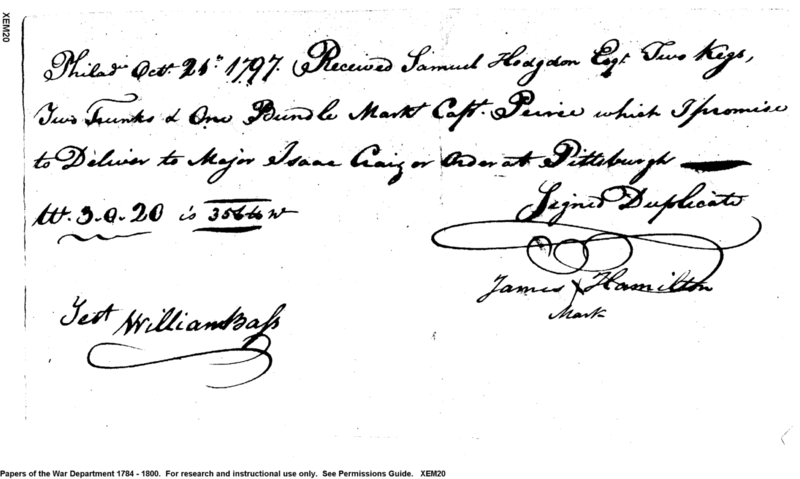 XEM20
Philada Octr. 25th 1797. Received Samuel Hodgdon Esqr. Two Kegs,
Two Trunks & One Bundle Markt Capt. Peirce which I promise
to Deliver to Major Isaac Craig or Order at Pittsburgh
Wt. 3.0.20 is 356 lb w
Signed Duplicate
James X Hamilton
Mark
Test William Bass
Papers of the War Department 1784 - 1800. For research and instructional use only. See Permissions Guide. XEM20